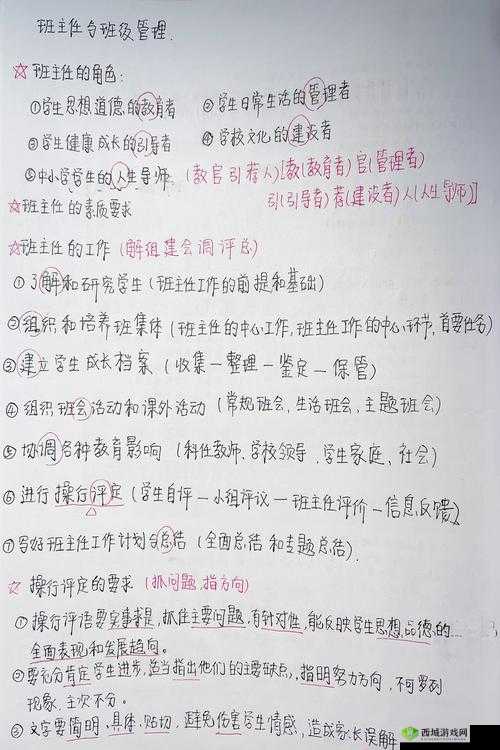 班主任与班级管理.
☆班主任的角色:
①学生思想道德的教育者 ②学生日常生活的管理者
③学生健康成长的引导者 ④学校文化的建设者
⑤中小学学生的人生导师 (教官引荐人)[教(教育者)官(管理者)
引(引导者)荐(建设者)人(人生导师)]
☆班主任的素质要求
☆班主任的工作(解组建会调评总)
①了解和研究学生(班主任工作的前提和基础)
②组织和培养班集体(班主任的中心工作,班主任工作的中心环节,首要任务)
③建立学生成长档案(收集—整理—鉴定—保管)
④组织班会活动和课外活动(常规班会,生活班会,主题班会)
⑤协调各种教育影响(科任教师、学校领导、学生家庭、社会)
⑥进行操行评定(学生自评—小组评议—班主任评价—信息反馈)
⑦写好班主任工作计划与总结(全面总结和专题总结).
☆ 操行评定的要求(抓问题,指方向)
①操行评语要实事求是,抓住主要问题,有针对性,能反映学生思想,品德的...
全面表现和发展趋向。
②要充分肯定学生进步,适当指出他们的主要缺点,指明努力方向,不可罗列
现象、主次不分。
③文字要简明、具体、贴切,避免伤害学生情感,造成家长误解
西城游戏网